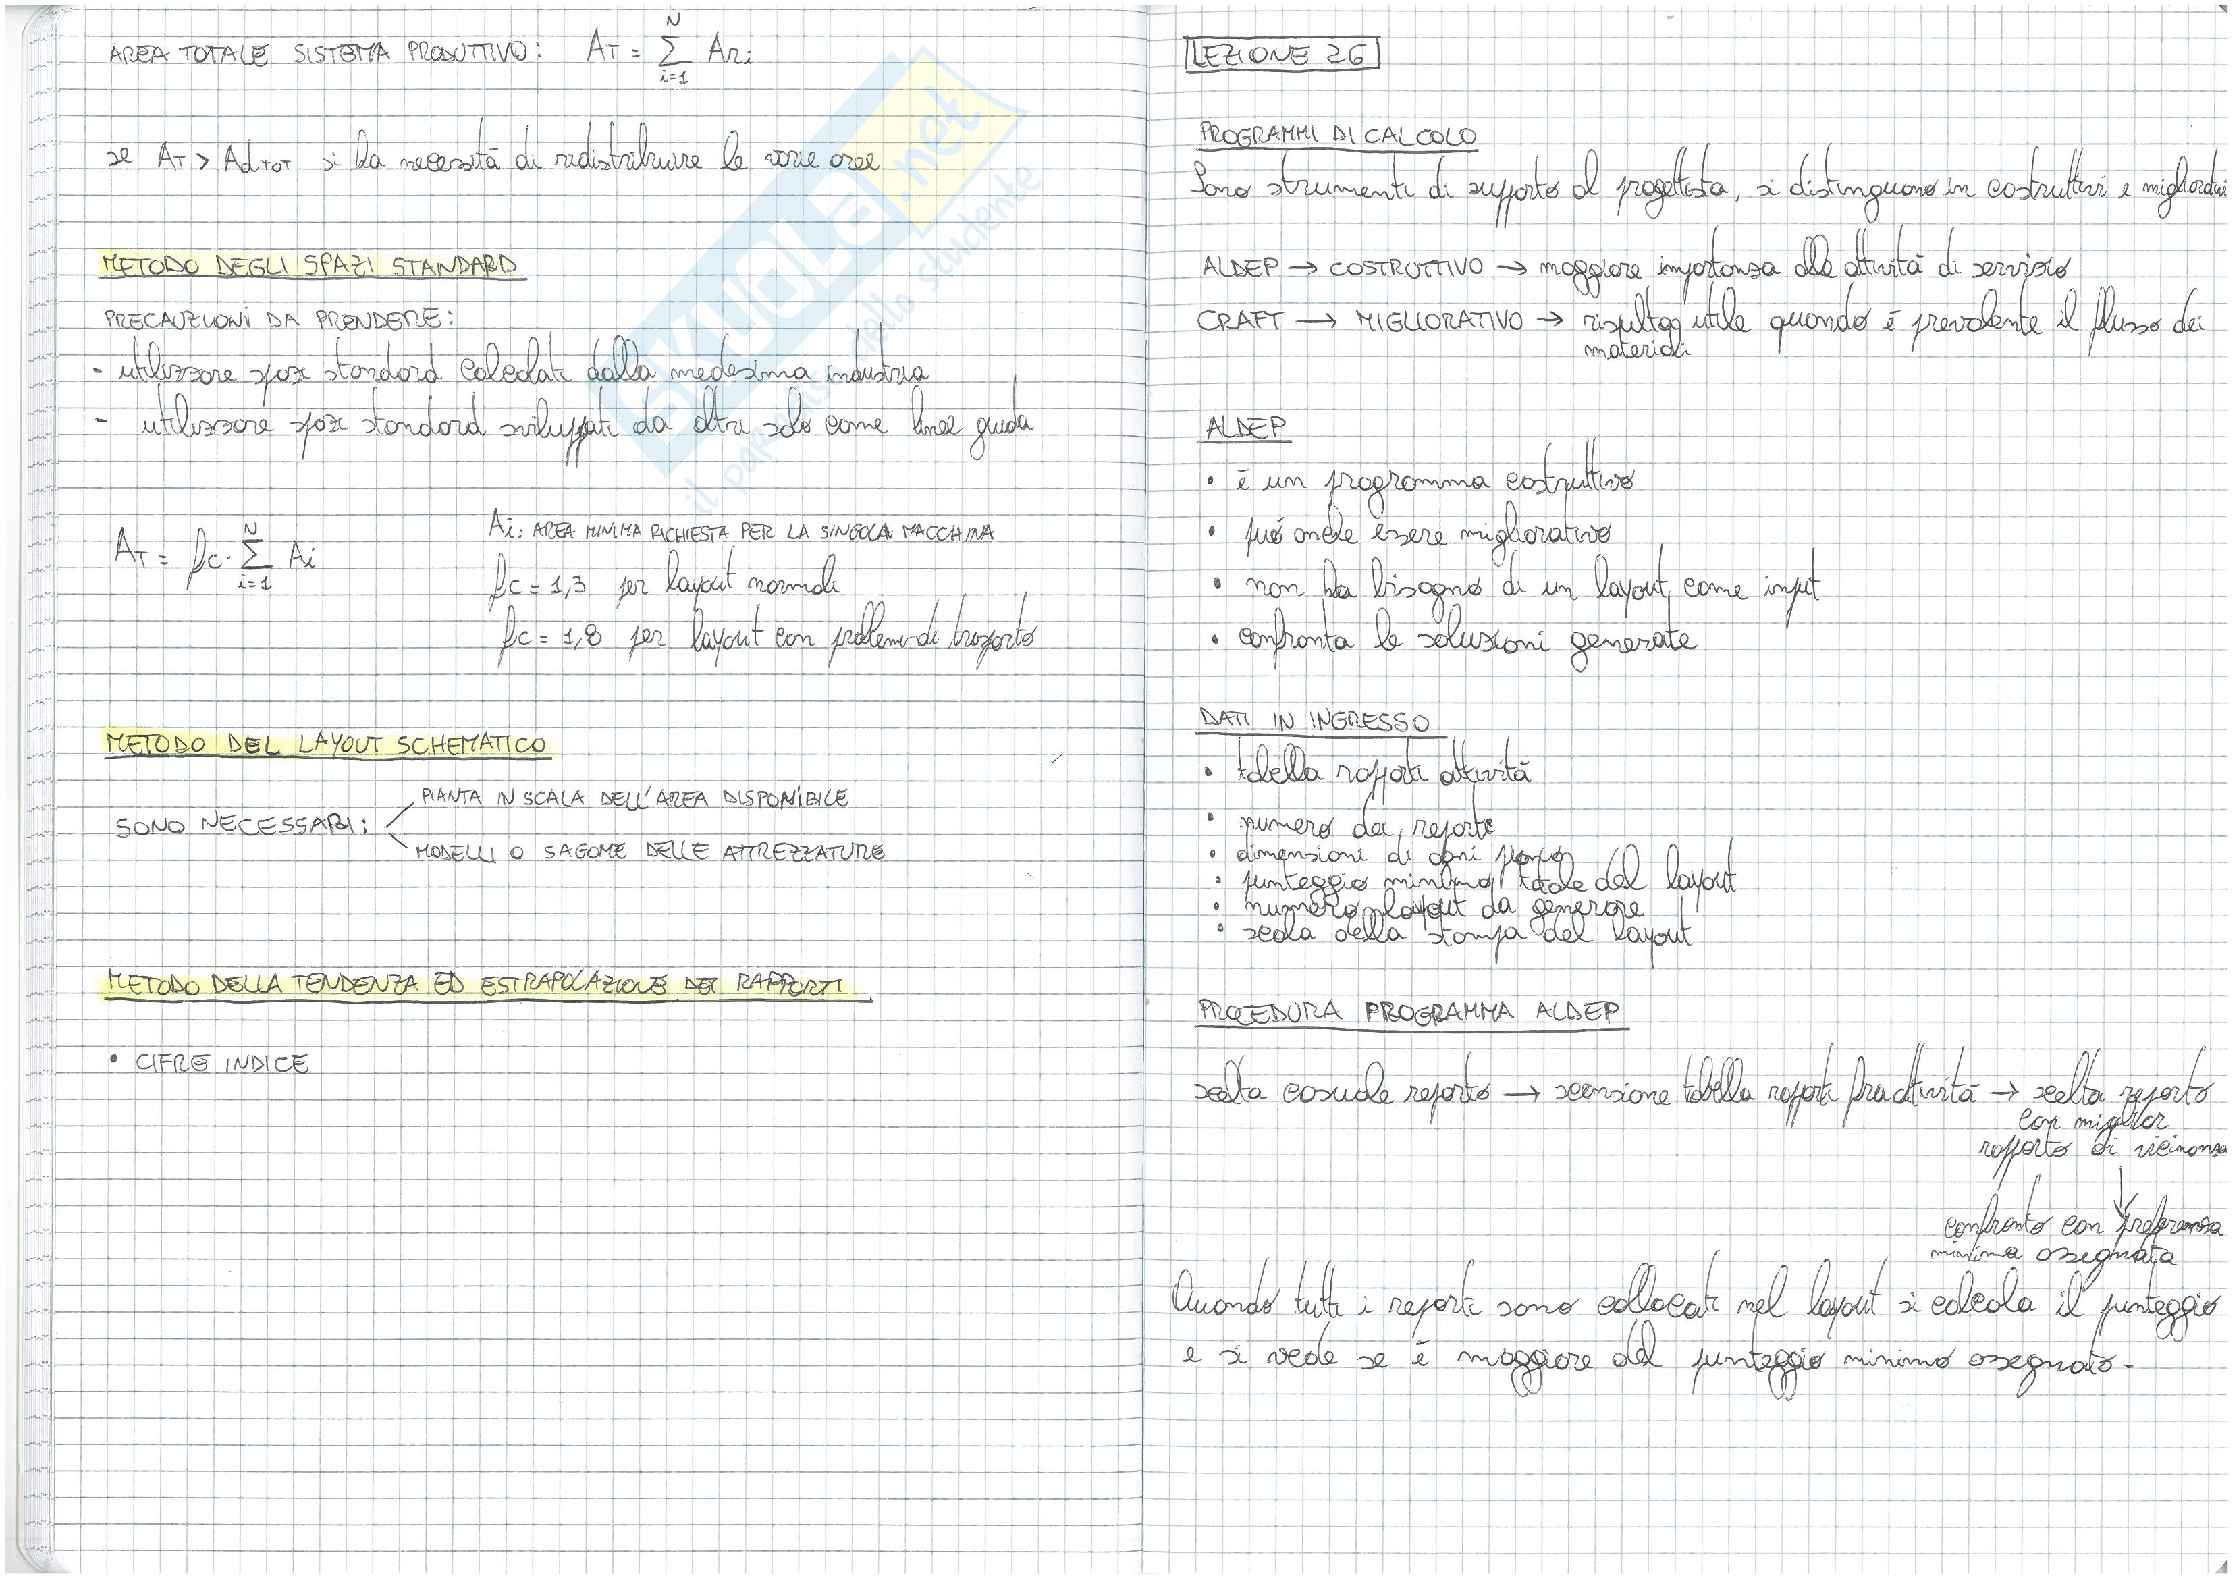 AREA TOTALE SISTEMA PRODUTTIVO: A_T = \sum_{i=1}^{N} A_{Ri}
se A_T > Ad_TOT si ha necessità di redistribuire le varie aree
METODO DEGLI SPAZI STANDARD
PRECAUZIONI DA PRENDERE:
- utilizzare spazi standard calcolati dalla medesima industria
- utilizzare spazi standard sviluppati da altri solo come linee guida
A_T = f_c · \sum_{i=1}^{N} A_i
A_i: AREA MINIMA RICHIESTA PER LA SINGOLA MACCHINA
f_c = 1,3 per layout normali
f_c = 1,8 per layout con problemi di trasporto
METODO DEL LAYOUT SCHEMATICO
SONO NECESSARI:
PIANTA IN SCALA DELL'AREA DISPONIBILE
MODELLI O SAGOME DELLE ATTREZZATURE
METODO DELLA TENDENZA ED ESTRAPOLAZIONE DEI RAPPORTI
• CIFRE INDICE
skuola.net
il paradiso dello studente
LEZIONE 26
PROGRAMMI DI CALCOLO
Sono strumenti di supporto al progettista, si distinguono in costruttivi e migliorativi
ALDEP → COSTRUTTIVO → maggiore importanza alle attività di servizio
CRAFT → MIGLIORATIVO → risulta utile quando è prevalente il flusso dei
materiali
ALDEP
• è un programma costruttivo
• può anche essere migliorativo
• non ha bisogno di un layout come input
• confronta le soluzioni generate
DATI IN INGRESSO
• tabella rapporti attività
• numero dei reparti
• dimensioni di ogni
• punteggio minimo totale del layout
• numero layout da generare
• scala della stampa del layout
PROCEDURA PROGRAMMA ALDEP
scelta casuale reparto → scansione tabella rapporti fra attività → scelta reparto
con miglior
rapporto di vicinanza
↓
confronto con preferenza
minima assegnata
Quando tutti i reparti sono collocati nel layout si calcola il punteggio
e si vede se è maggiore del punteggio minimo assegnato.